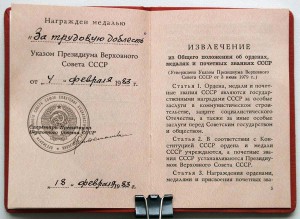 Награжден медалью
"За трудовую доблесть"
Указом Президиума Верховного
Совета СССР
от „4" февраля 1983 г.
Секретарь Президиума
Верховного Совета СССР
„18" февраля 1983 г.
ИЗВЛЕЧЕНИЕ
из Общего положения об орденах,
медалях и почетных званиях СССР
(Утверждено Указом Президиума Верховного
Совета СССР от 3 июля 1979 г.)
Статья 1. Ордена, медали и по-
четные звания СССР являются государ-
ственными наградами СССР за особые
заслуги в коммунистическом строи-
тельстве, защите социалистического
Отечества, а также за иные особые
заслуги перед Советским государством
и обществом.
Статья 2. В соответствии с Кон-
ституцией СССР ордена и медали
СССР учреждаются, а почетные зва-
ния СССР устанавливаются Президиу-
мом Верховного Совета СССР.
Статья 3. Награждение орденами,
медалями и присвоение почетных зва-